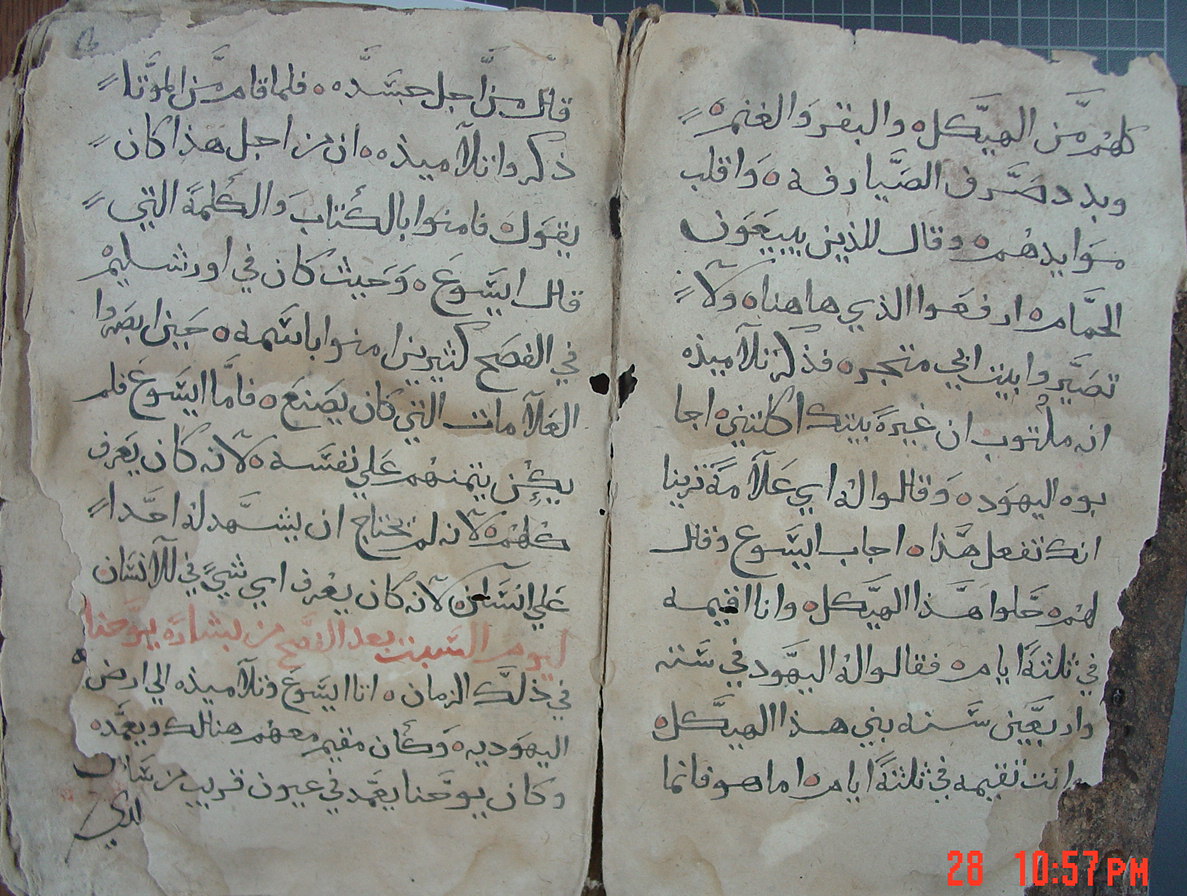 كلهم من الهيكل والبقر والغنم
وبدد صرف الصيارفه واقلب
موايدهم وقال للذين يبيعون
الحمام ارفعوا الذي هاهنا ولا
تصيروا بيت ابي متجره فذكر تلاميذه
انه مكتوب ان غيرة بيتك اكلتني اجا
بوه اليهود وقالوا له اي علامة ترينا
انك تفعل هذا اجاب ايسوع وقال
لهم حلوا هذا الهيكل وانا اقيمه
في ثلثة ايام فقالوا له اليهود في ستة
واربعين سنه بني هذا الهيكل
وانت تقيمه في ثلثة ايام اما هو فانما
قال من اجل جسده فلما قام من الموتا
ذكروا تلاميذه ان من اجل هذا كان
يقول فامنوا بالكتاب والكلمة التي
قال ايسوع وحيث كان في اورشليم
في الفصح كثيرين امنوا باسمه حين ابصروا
العلامات التي كان يصنع فاما ايسوع فلم
يكن يتمنهم علي نفسه لانه كان يعرف
كلهم لانه لم يحتاج ان يشهد له احدا
علي انسان لانه كان يعرف اي شي في الانسان
ليوم السبت بعد الفصح من بشارة يوحنا
في ذلك الزمان اتا ايسوع وتلاميذه الي ارض
اليهوديه وكان مقيم معهم هنالك ويعمده
وكان يوحنا يعمد في عيون قريب من سالم
لان
28 10:57 PM